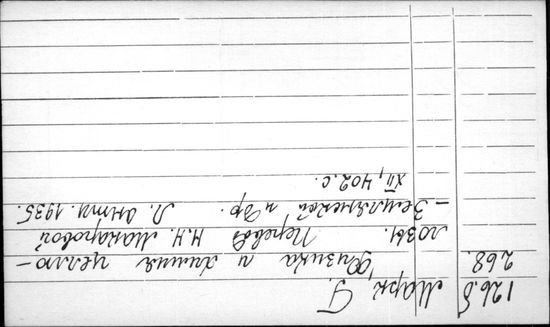 126.8
268.
Марк, Г.
Физика и химия целлю-
лозы. Перевод Н.Н. Макаровой
-Землянской и др. Л. ОНТИ. 1935.
XII, 402 с.